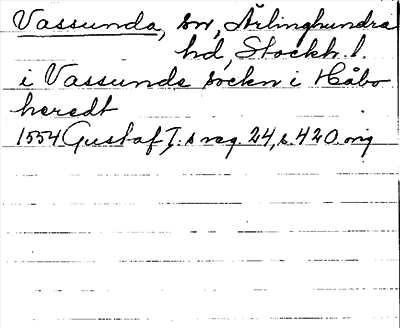 Vassunda, sn, Ärlinghundra
hd, Stockh. l.
i Vassunda sockn i Håbo
heredt
1554 Gustaf I:s reg. 24, s. 420. orig